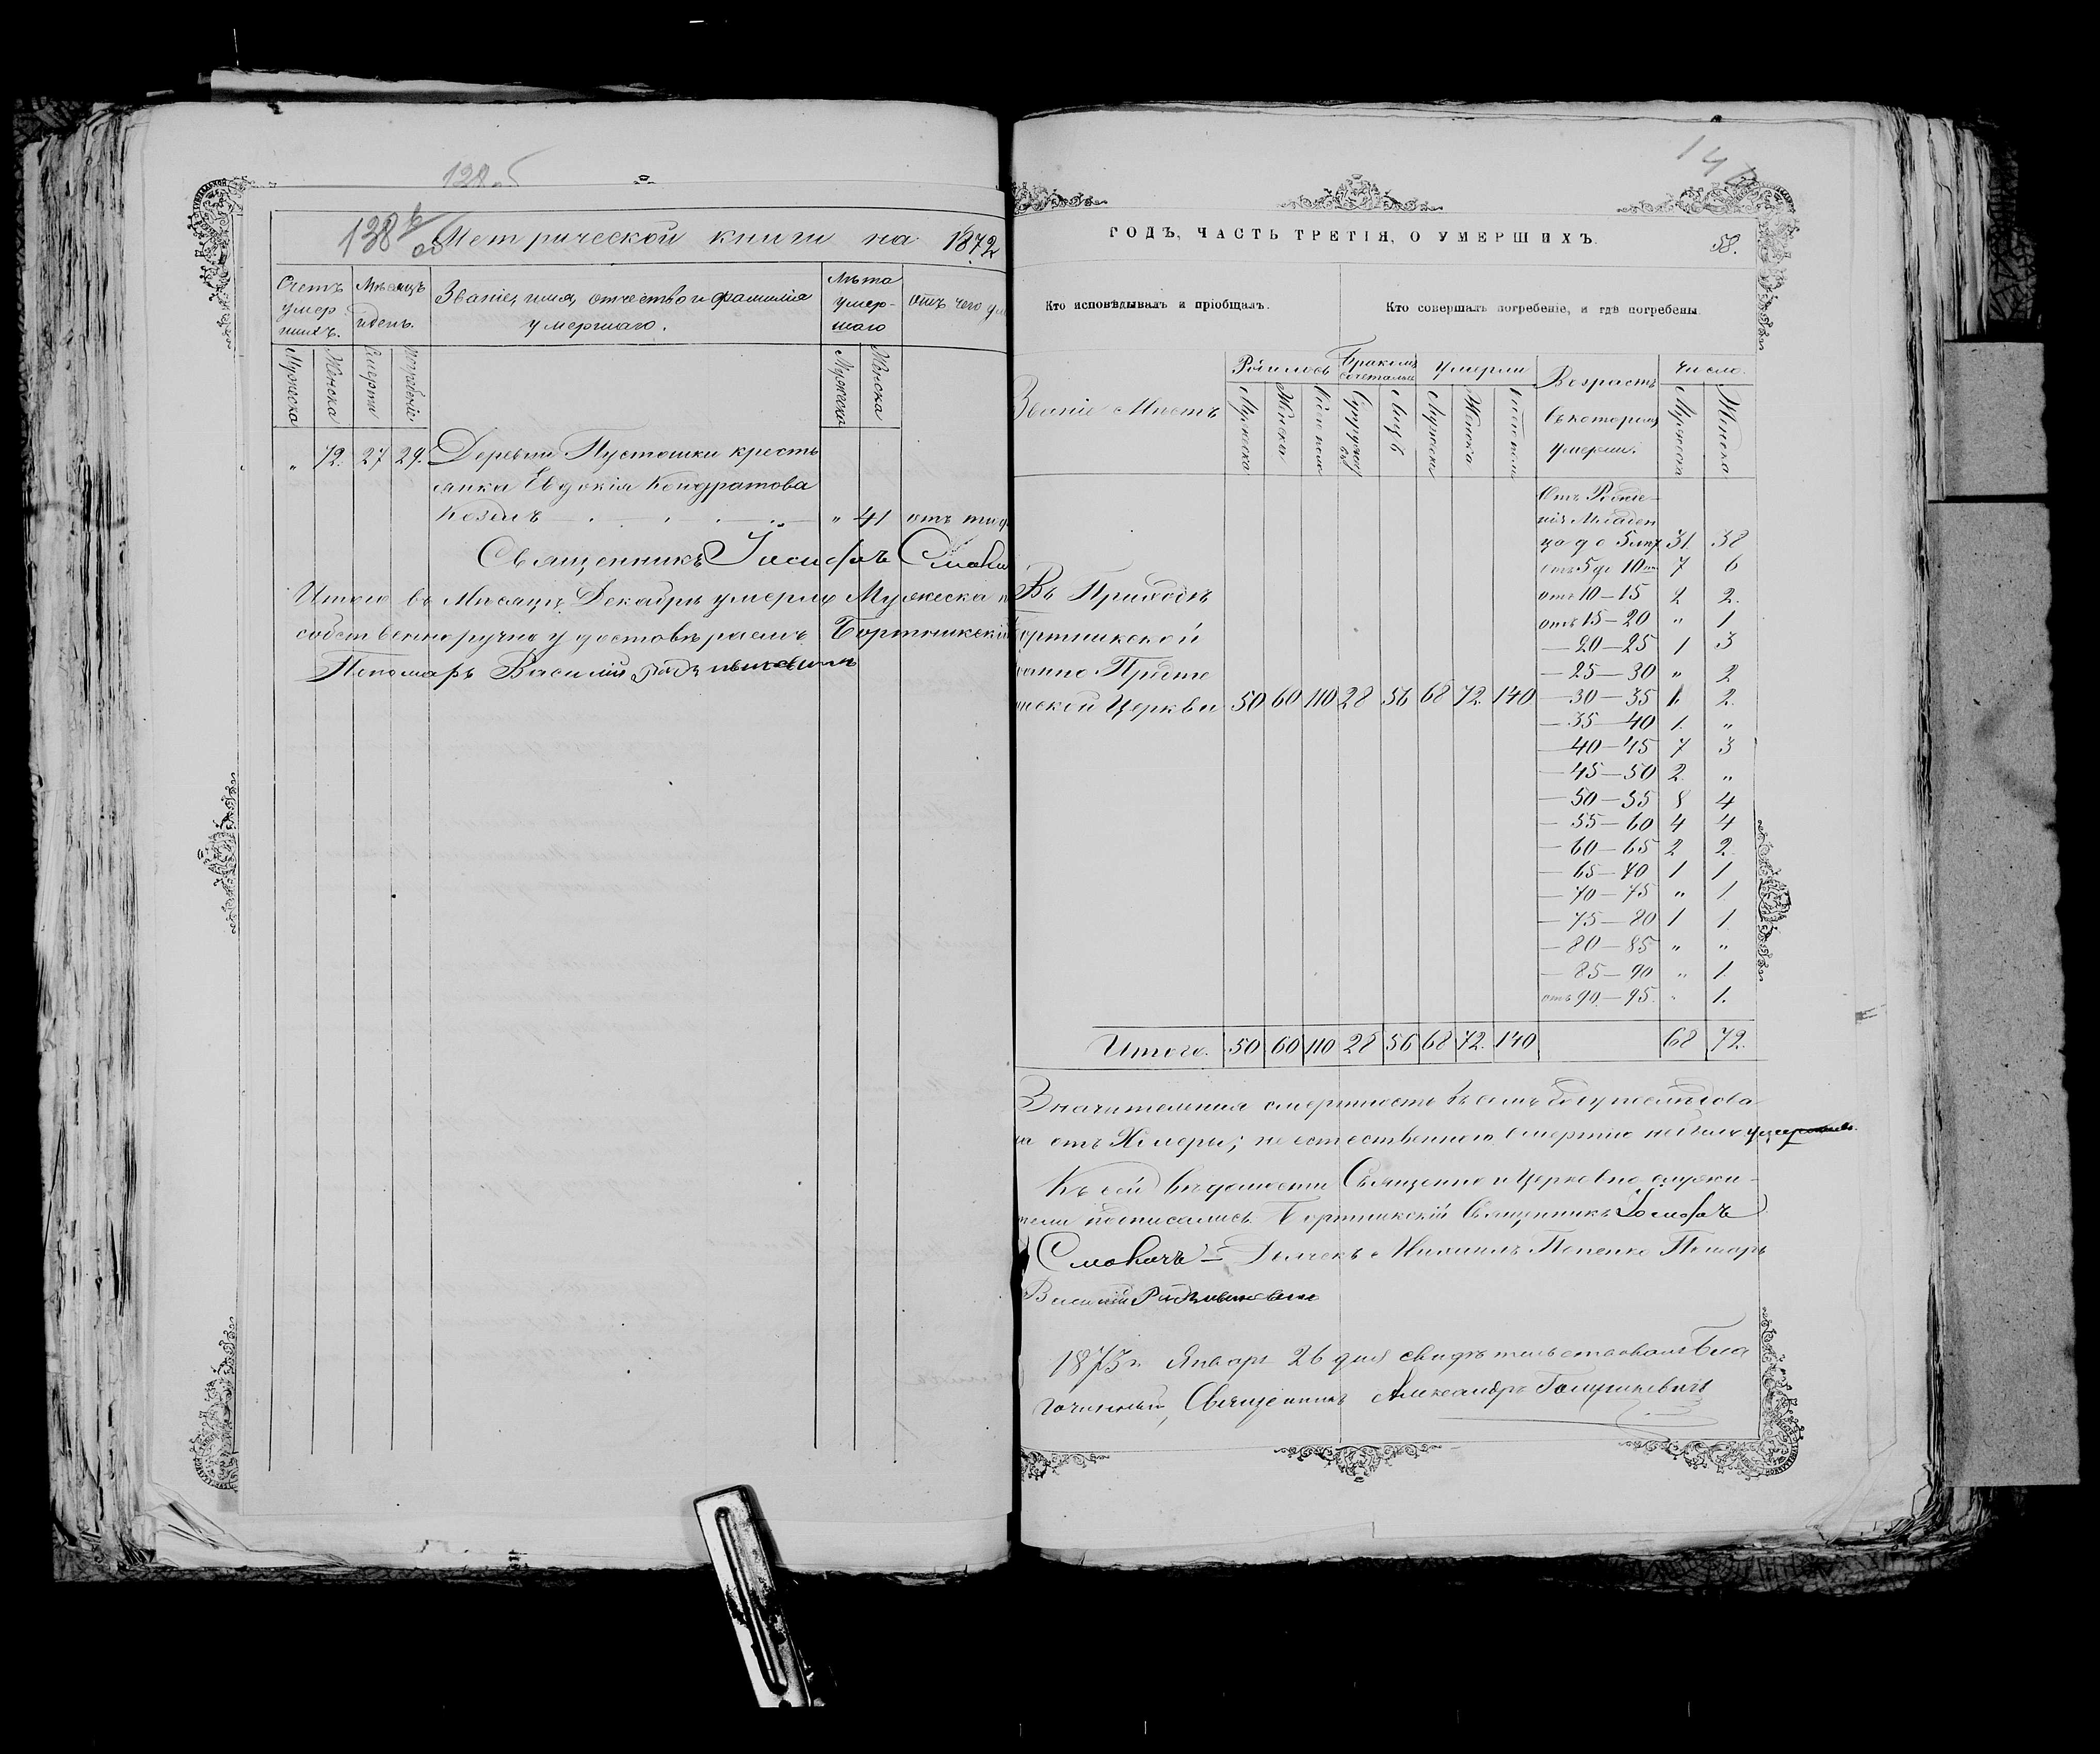 138 об
138 об
Метрической книги на 1872
Счетъ умершихъ.
Мѣсяцъ и день.
Званіе, имя, отчество и фамилія умершаго.
Лѣта умершаго
Отъ чего
Мужеска
Женска
Смерти
Погребенія
Мужеска
Женска
„ 72. 27 29. Деревни Пустошки кресть
янка Евдокія Кондратова
Козелъ „ 41 отъ
Священникъ Іосифъ
Итого въ Мѣсяцѣ Декабрѣ умерло Мужеска
собственноручно удостовѣряемъ Бортникскій
Пономарь Василій
ГОДЪ, ЧАСТЬ ТРЕТІЯ, О УМЕРШИХЪ.
58.
Кто исповѣдывалъ и пріобщалъ.
Кто совершалъ погребеніе, и гдѣ погребены.
Званіе Мѣстъ
Родилось
Бракомъ сочеталось
Умерли
Возрастъ
въ которомъ
умерли.
Число.
Мужеска
Женска
Обоего пола
Супружествъ
Лицъ
Мужеска
Женска
Обоего пола
Мужеска
Женска
Отъ Рожде-
нія Младен
ца до 5 лѣтъ 31. 38
отъ 5 до 10 7 6
отъ 10-15 2 2.
отъ 15-20 „ 1
— 20-25 1 3
— 25-30 „ 2
— 30-35 1. 2.
— 35-40 1. „
— 40-45 7 3
— 45-50 2. „
— 50-55 8 4
— 55-60 4 4
— 60-65 2 2.
— 65-70 1 1
— 70-75 „ 1
— 75-80 1 1
— 80-85 „ „
— 85-90 „ 1.
отъ 90-95. „ 1.
Въ Приходѣ
ортникской
Предте
Церкви 50 60 110 28 56 68 72. 140
Итого. 50 60 110 28 56 68 72. 140 68 72.
Значительная смертность въ семъ году послѣдова
ла отъ Холеры; не естественною смертію небыло
Къ сей вѣдомости Священно и Церковно служи-
тели подписались Бортникскій Священникъ Іосифъ
Дьячекъ Михаилъ Попенко Пономарь
Василій
1873 г. Января 26 дня свидѣтельствовалъ Бла
гочинный, Священникъ Александръ